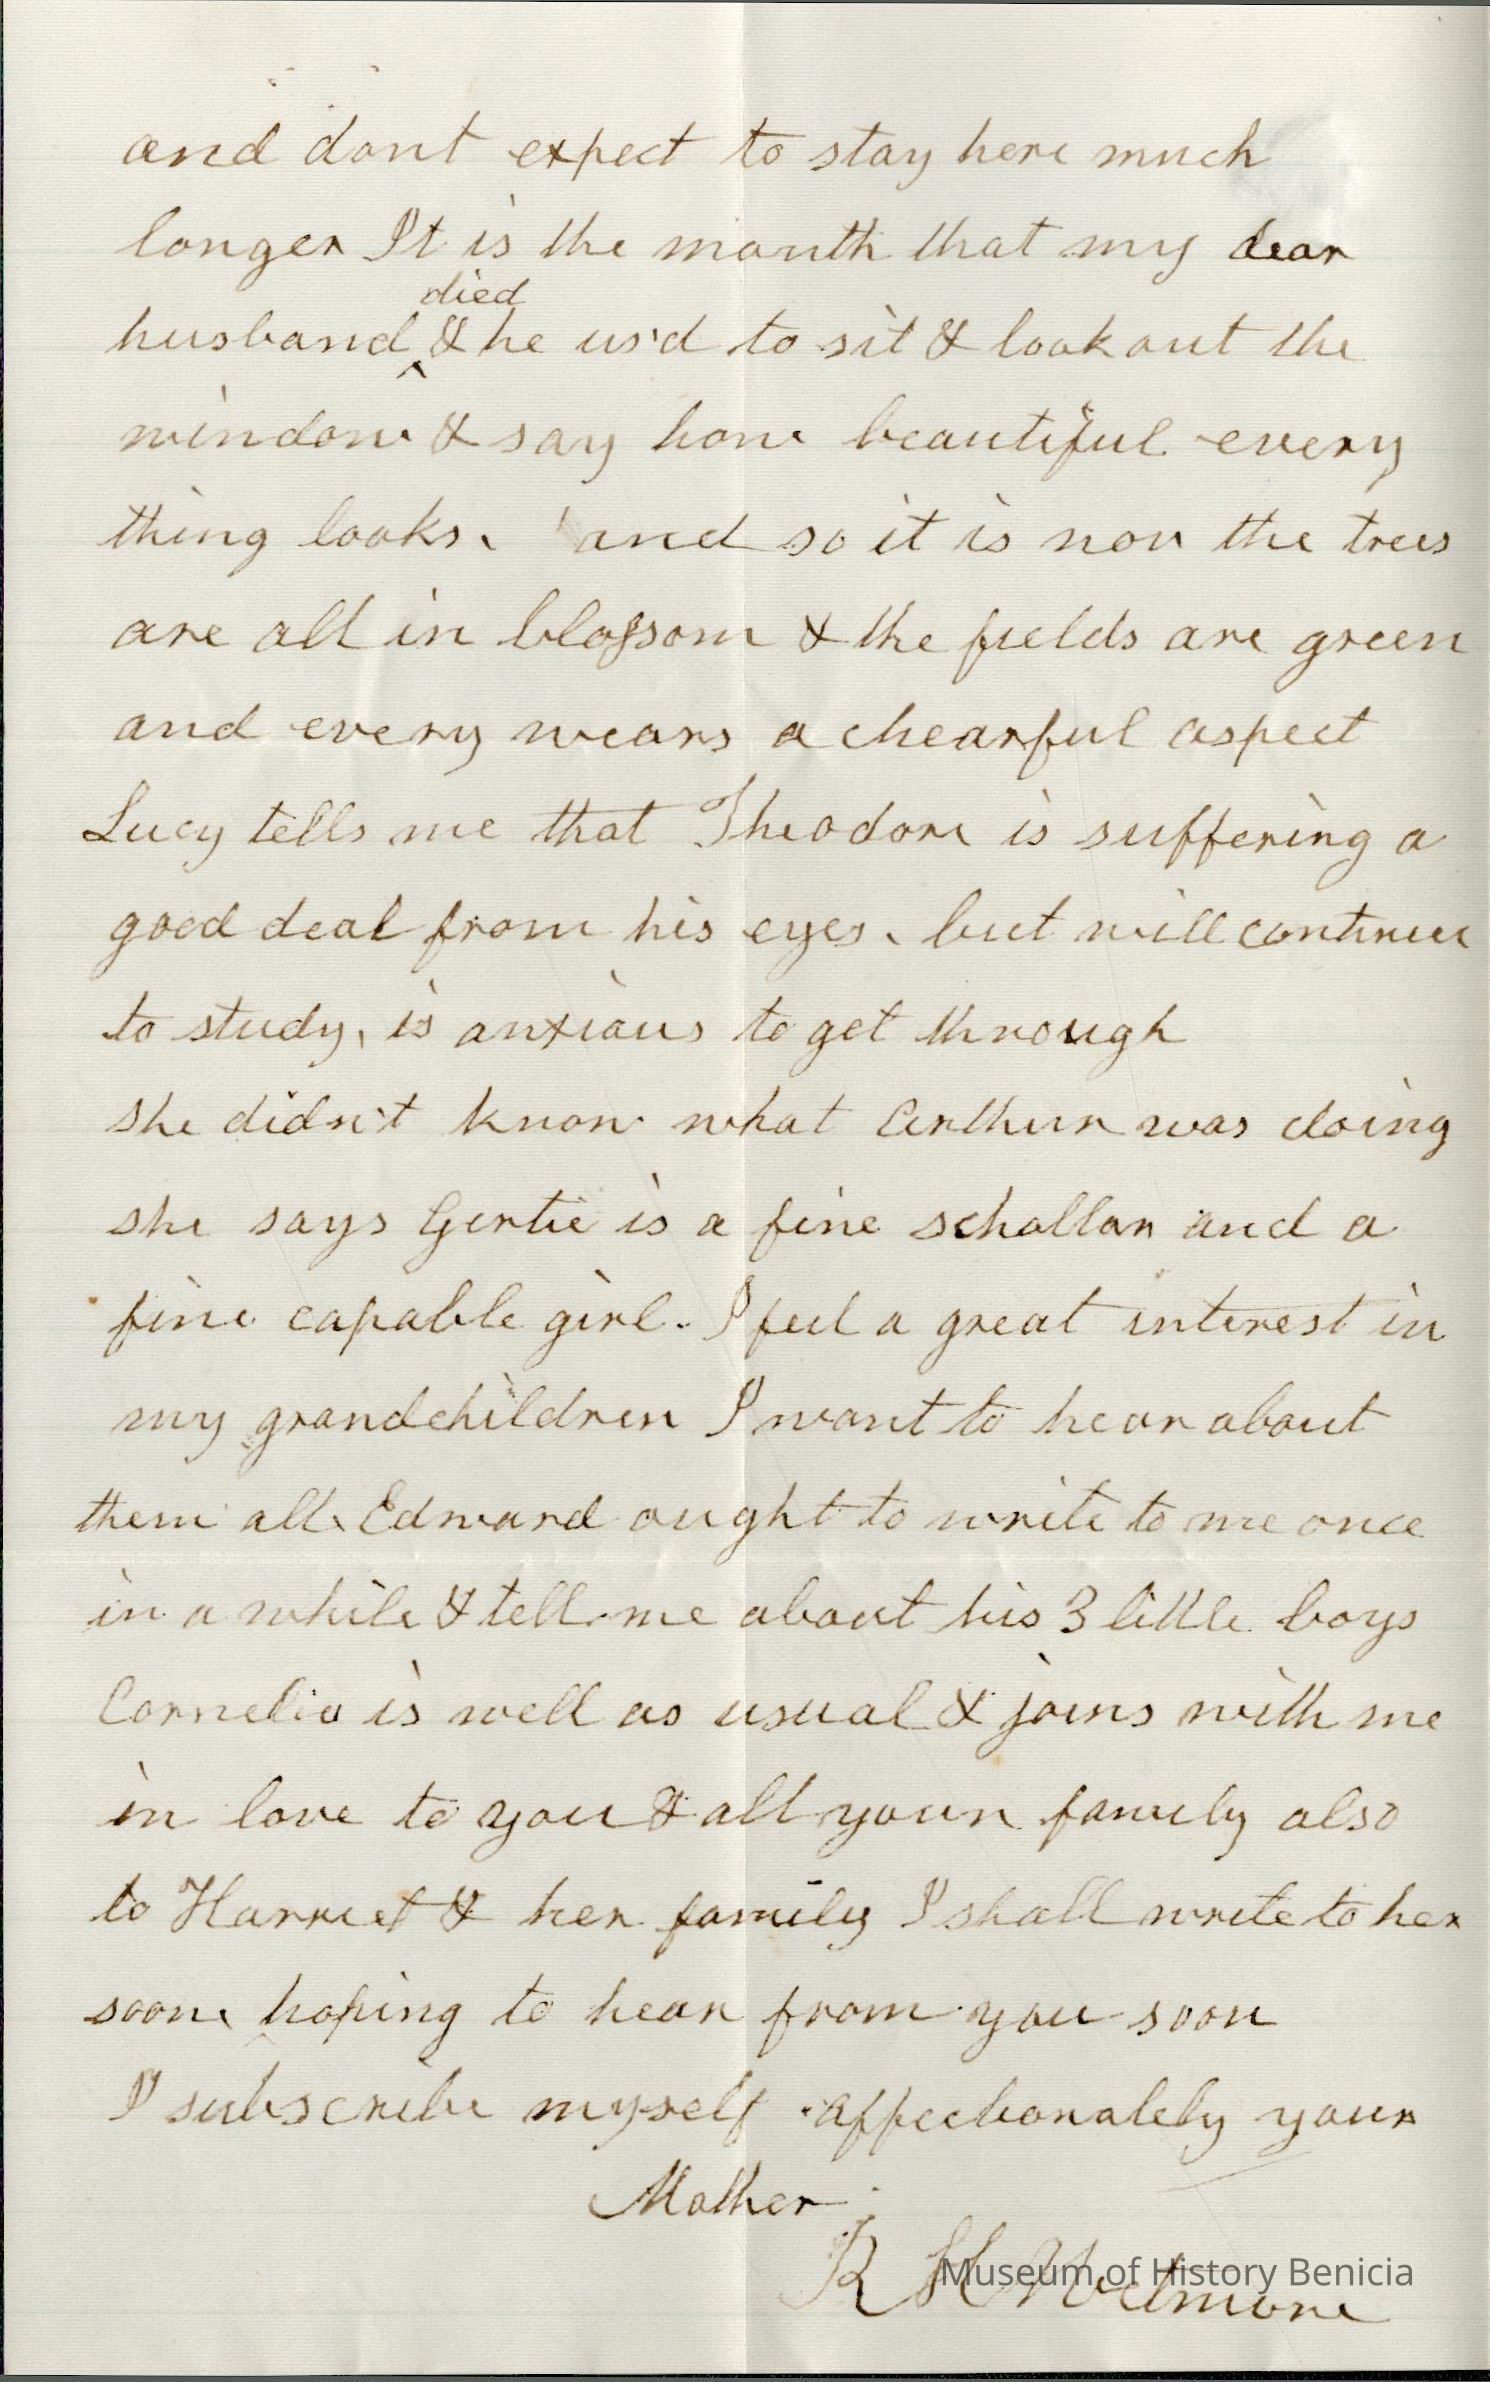 and dont expect to stay here much
longer It is the month that my dear
died
husband ^ & he us'd to sit & look out the
window & say how beautiful every
thing looks. and so it is now the trees
are all in blossom & the fields are green
and every wears a chearful aspect
Lucy tells me that Theodore is suffering a
good deal from his eyes, but will continue
to study, is anxious to get through
she didn't know what Arthur was doing
she says Gertie is a fine schollar and a
fine capable girl. I feel a great interest in
my grandchildren I want to hear about
them all. Edward ought to write to me once
in a while & tell me about his 3 little boys
Cornelia is well as usual & joins with me
in love to you & all your family also
to Harriet & her family I shall write to her
soon, hoping to hear from you soon
I subscribe myself affectionately your
Mother
R H Wetmore
Museum of History Benicia